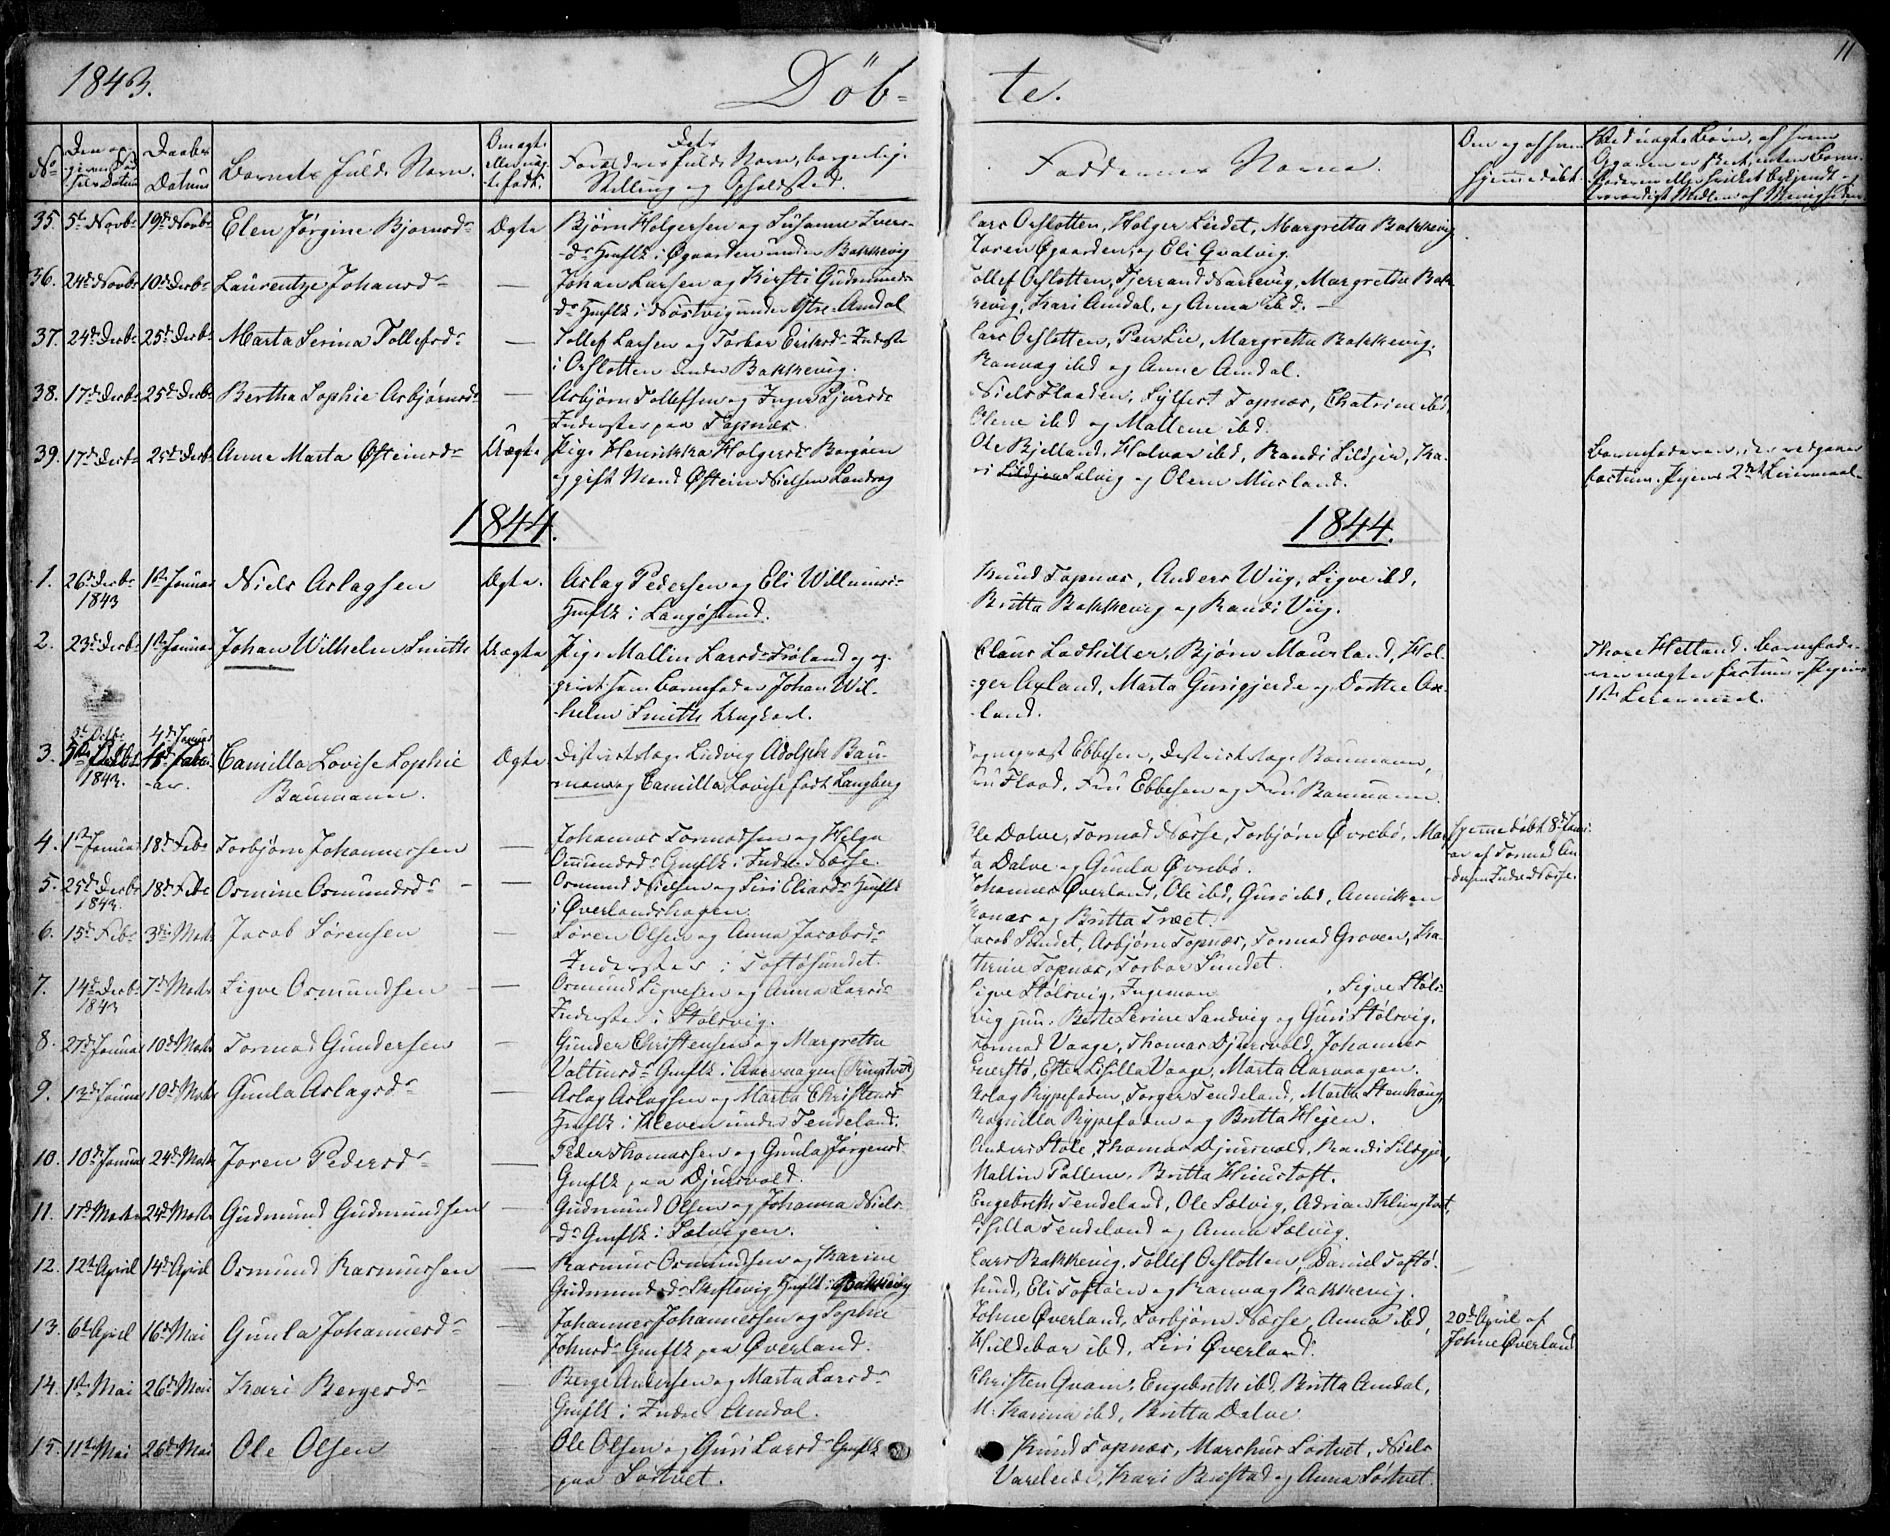 11
1843.
Döb-
te.
No
Den opgivne Fødsels Datum
Daabs Datum
Barnets fulde Navn.
Om ægte eller uægte født.
Dets Forældres fulde Navn, borgerlig Stilling og Opholdsted.
Faddernes Navne.
Om og af hvem hjemmedøbt.
35. 5t Novbr 19d Novbr Elen Jørgine Bjørnsdr Ægte
Bjørn Holgersen og Susanne Ivers-
dr Gmflk i Øgaarden under Bakkevig
Lars Oeslotten, Holger Lindet, Margretta Bakkevig
Joren Øgaarden, og Eli Qvalvig.
36. 24d Novbr 10d Decbr Laurentze Johansdr —
Johan Larsen og Kirsti Gudmunds-
dr Hmflk i Nøstvig under Østre-Amdal
Tollef Oeslotten, Tjerrand Nartevig, Margrethe Bak-
kevig, Kari Amdal, og Anna ibd.
37. 24d Decbr 25d Decbr Marta Serina Tollefsdr —
Tollef Larsen og Torbor Eriksdr Inderste
i Oeslotten under Bakkevig.
Lars Oeslotten, Peer Lie, Margretta Bakkevig,
Ranvæg ibd og Anne Amdal.
38. 17d Decbr 25d Decbr Bertha Sophie Asbjørnsdr —
Asbjørn Tollefsen og Inger Sjursdr
Inderster paa Topnæs.
Niels Flaaden, Sylfest Topnæs, Chatrine ibd,
Olene ibd og Mallene ibd.
39. 17d Decbr 25d Decbr Anne Marta Østeinsdr Uægte
Pige Henrikka Holgersdr Borgøen
og gift Mand Østein Nielsen Landvag
Ole Bjelland, Halvor ibd, Randi Lildjer, Ka-
ri Lildjer Sælvig og Olene Musland.
Barnefaderen, der vedgaaer
factum. Pigens 2det Leiermaal.
1844.
1844.
1. 26d Decbr 1843 1ste Januar Niels Aslagsen Ægte.
Aslag Pedersen og Eli Willumsdr
Gmflk i Langøsund.
Knud Topnæs, Anders Wiig, Sigve ibd,
Britta Bakkevig og Randi Viig.
2. 23d Decbr 1ste Januar Johan Wilhelm Smith Uægte
Pige Mallin Larsdr Frøland og op-
givet som Barnefader Johan Wil-
helm Smith Ungkarl.
Claus Ladhiller, Bjørn Mousland, Hol-
ger Axland, Marta Gunigjerde og Dorthe Ax-
land.
Thore Hetland. Barnefade-
ren nægter factum. Pigens
1ste Leiermaal.
3. 5t Octbr 1843. 4d Januar Camilla Lovise Sophie
Baumann. Ægte
Districtslæge Ludvig Adolph Bau-
mann og Camilla Lovise født Langberg
Sognepræst Ebbesen, Districtslæge Baumann,
Fru Flood, Fru Ebbesen og Fru Baumann.
4. 1ste Januar 18d Febr Torbjørn Johannessen —
Johannes Tormodsen og Helga
Omundsdr Gmflk i Indre Næsse.
Ole Dalve, Tormod Næsse, Torbjørn Øvrebø, Mar-
ta Dalve og Gunla Øvrebø.
Hjemmedøbt 8d Janu-
ar af Tormod An-
dersen Indre Næsse.
5. 25d Decbr 1843. 18d Febr Osmine Osmundsdr —
Osmund Nielsen og Siri Eliasdr Hmflk
i Øverlandshagen.
Johannes Øverland, Ole ibd, Guro ibd, Anniken
og Britta Træet.
6. 15d Febr 3die Marts Jacob Sørensen —
Søren Olsen og Anna Jacobsdr
Inderster i Toftøsundet.
Jacob Sundet, Asbjørn Topnæs, Tormod Groven, Ka-
thrine Topnæs, Torbor Sundet.
7. 14d Decbr 1843 7d Marts Sigve Osmundsen —
Osmund Sigvesen og Anna Larsdr
Inderster i Stølsvig.
Sigve Stølsvig, Ingeman , Sigve Støls-
vig jun. Berte Serine Sandvig og Guri Stølsvig.
8. 27d Januar 10d Marts Tormod Gundersen —
Gunder Christensen og Margretta
Valtinsdr Gmflk i Aarvaagen
Tormod Vaage, Thomas Djursvold, Johannes
Sisilla Vaage, Marta Aarvaagen.
9. 13d Januar 10d Marts Gunla Aslagsdr —
Aslag Aslagsen og Marta Christensdr
Gmflk i Kleven under Tendeland.
Aslag Rypefaden, Torger Tendeland, Marta Stenhoug,
Ragnilla Rypefaden og Britta Højen.
10. 10d Januar 24d Marts Joren Pedersdr —
Peder Thomassen og Gunla Jørgensdr
Gmflk paa Djursvold.
Anders Støle, Thomas Djursvold, Randi Lildgjer,
Mallin Pollen, Britta Hinustoft.
11. 17d Marts 24d Marts Gudmund Gudmundsen —
Gudmund Olsen og Johanna Niels-
dr Gmflk i Sælvigen.
Engebreth Tendeland, Ole Sælvig, Adrian Klungtvet,
Sisilla Tendeland og Anna Sælvig.
12. 12d April 14d April Osmund Rasmussen —
Rasmus Osmundsen og Karine
Gudmundsdr Skeftevig Hmflk i Bakkevig
Lars Bakkevig, Tollef Oeslotten, Daniel Toftø-
sund, Eli Toftøen og Ranvæg Bakkevig.
13. 6d April 16d Mai Gunla Johannesdr —
Johannes Johannessen og Sophie
Johnsdr Gmflk paa Øverland.
Johne Øverland, Torbjørn Næsse, Anna ibd,
Huldebor ibd, Siri Øverland.
20d April af
Johne Øverland
14. 1ste Mai 26d Mai Kari Bergesdr —
Berge Andersen og Marta Larsdr
Gmflk i Indre Amdal.
Christen Qvam, Engebreth ibd, Britta Amdal,
M. Karina ibd, Britta Dalve
15. 11te Mai 26d Mai Ole Olsen —
Ole Olsen og Guri Larsdr Gmflk
paa Løstvet.
Knud Topnæs, Marchus Løstvet, Niels
Vasleid, Kari Bustad og Anna Løstvet.